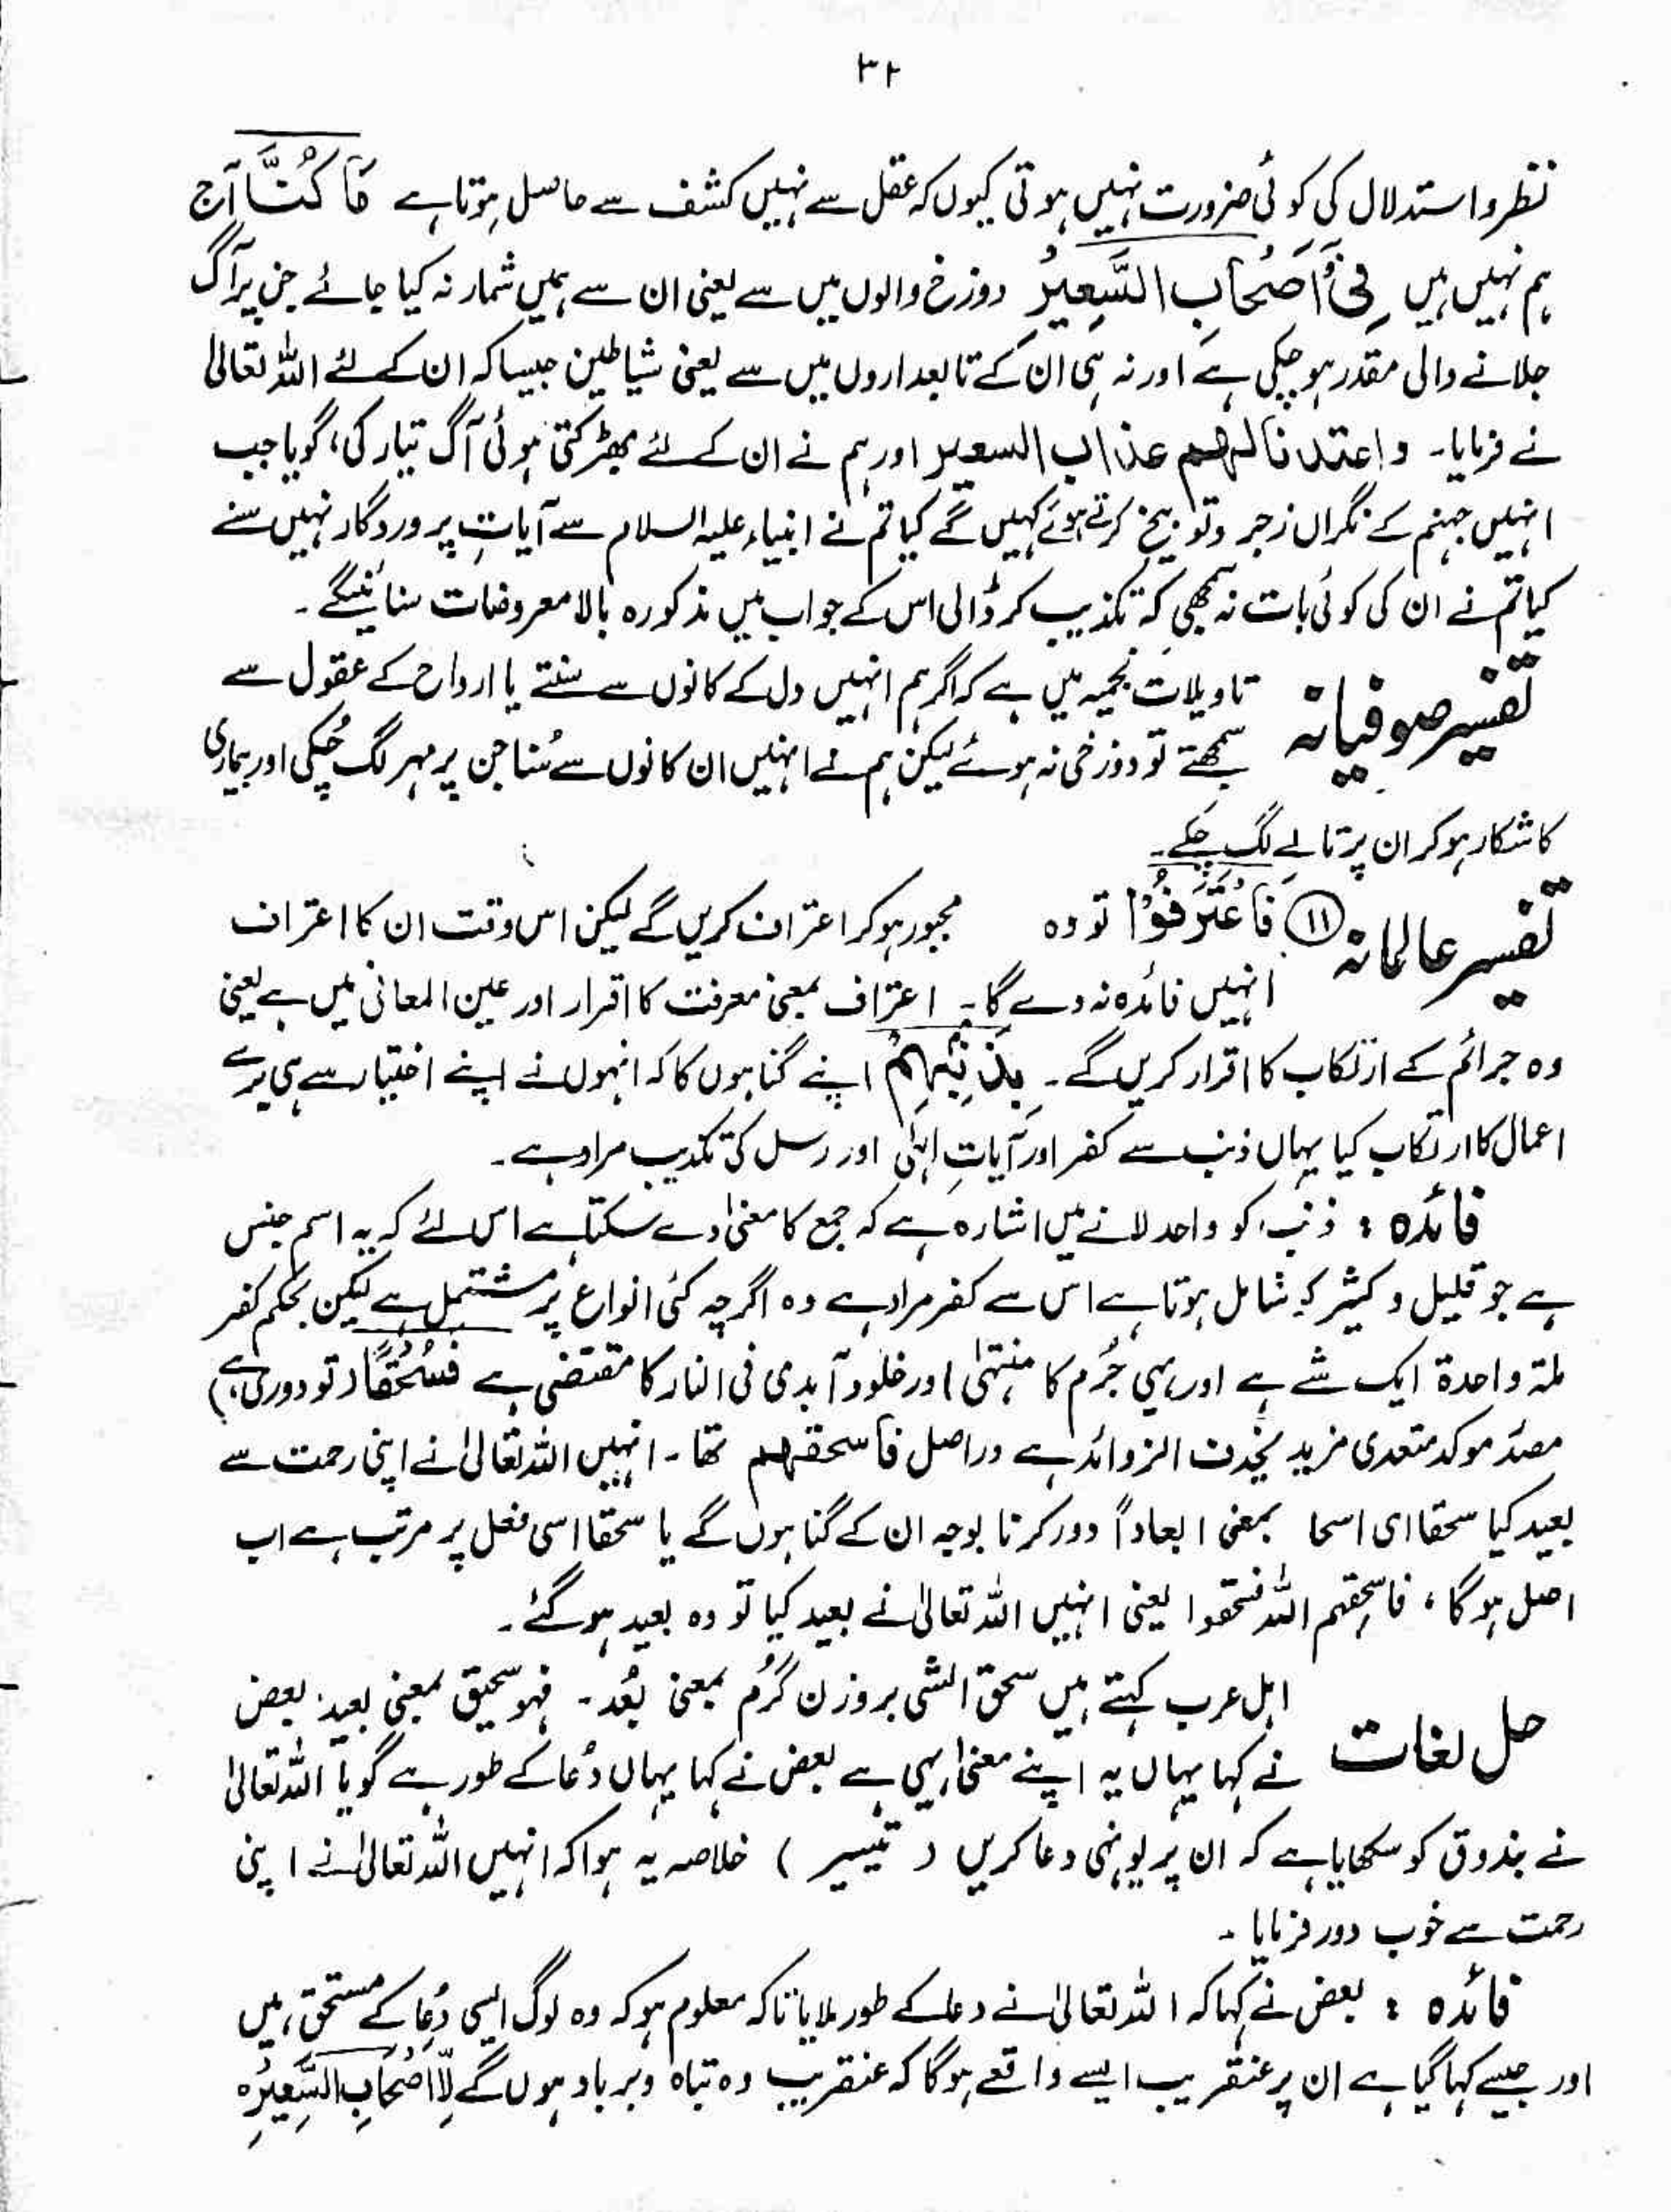 ۳۲
نظر و استدلال کی کوئی ضرورت نہیں ہوتی کیوں کہ عقل سے نہیں کشف سے حاصل ہوتا ہے مَا كُنَّا آج
ہم نہیں ہیں فِیْ اَصْحَابِ السَّعِیْرِ دوزخ والوں میں سے یعنی ان سے ہمیں شمار نہ کیا جائے جن پر آگ
جلانے والی مقدر ہو چکی ہے اور نہ ہی ان کے تابعداروں میں سے یعنی شیاطین جیسا کہ ان کے لئے اللہ تعالیٰ
نے فرمایا۔ واعتدنا لہم عذاب السعیر اور ہم نے ان کے لئے بھڑکتی ہوئی آگ تیار کی، گویا جب
انہیں جہنم کے نگراں زجر و توبیخ کرتے ہوئے کہیں گے کیا تم نے انبیاء علیہ السلام سے آیاتِ پروردگار نہیں سنے
کیا تم نے ان کی کوئی بات نہ سمجھی کہ تکذیب کر ڈالی اس کے جواب میں مذکورہ بالا معروضات سنائینگے۔
تفسیر صوفیانہ تاویلات نجمیہ میں ہے کہ اگر ہم انہیں دل کے کانوں سے سنتے یا ارواح کے عقول سے
سمجھتے تو دوزخی نہ ہوئے لیکن ہم نے انہیں ان کانوں سے سُنا جن پر مہر لگ چُکی اور بیماری
کا شکار ہو کر ان پر تالے لگ چکے۔
تفسیر عالمانہ ⑪ فَاعْتَرَفُوْا تو وہ مجبور ہو کر اعتراف کریں گے لیکن اس وقت ان کا اعتراف
انہیں فائدہ نہ دے گا۔ اعتراف بمعنی معرفت کا اقرار اور عین المعانی میں ہے یعنی
وہ جرائم کے ارتکاب کا اقرار کریں گے۔ بِذَنْۢبِهِمْ اپنے گناہوں کا کہ انہوں نے اپنے اختیار سے ہی برے
اعمال کا ارتکاب کیا یہاں ذنب سے کفر اور آیاتِ الٰہی اور رسل کی تکذیب مراد ہے۔
فائدہ : ذنب کو واحد لانے میں اشارہ ہے کہ جمع کا معنیٰ دے سکتا ہے اس لئے کہ یہ اسم جنس
ہے جو قلیل و کثیر کو شامل ہوتا ہے اس سے کفر مراد ہے وہ اگرچہ کئی انواع پر مشتمل ہے لیکن بحکم کفر
ملۃ واحدۃ ایک شے ہے اور یہی جُرم کا منتہیٰ اور خلود آبدی فی النار کا مقتضی ہے فَسُحْقًا (تو دوری ہے)
مصدر موکد متعدی مزید بحذف الزوائد ہے دراصل فاسحقہم تھا۔ انہیں اللہ تعالیٰ نے اپنی رحمت سے
بعید کیا سحقا ای اسحا بمعنی ابعاداً دور کرنا بوجہ ان کے گناہوں گے یا سحقا اسی فعل پر مرتب ہے اب
اصل ہوگا، فاسحقہم اللہ فسحقوا یعنی انہیں اللہ تعالیٰ نے بعید کیا تو وہ بعید ہو گئے۔
حل لغات اہل عرب کہتے ہیں سحق الشی بروزن کَرُم بمعنی بَعُد۔ فہو سحیق بمعنی بعید۔ بعض
نے کہا یہاں یہ اپنے معنیٰ یہی ہے بعض نے کہا یہاں دُعا کے طور ہے گویا اللہ تعالیٰ
نے بندوں کو سکھایا ہے کہ ان پر یونہی دعا کریں ( تیسیر ) خلاصہ یہ ہوا کہ انہیں اللہ تعالیٰ نے اپنی
رحمت سے خوب دور فرمایا۔
فائدہ : بعض نے کہا کہ اللہ تعالیٰ نے دعا کے طور لایا تاکہ معلوم ہو کہ وہ لوگ ایسی دُعا کے مستحق ہیں
اور جیسے کہا گیا ہے ان پر عنقریب ایسے واقعے ہوگا کہ عنقریب وہ تباہ و برباد ہوں گے لِّاَصْحَابِ السَّعِیْرِہ